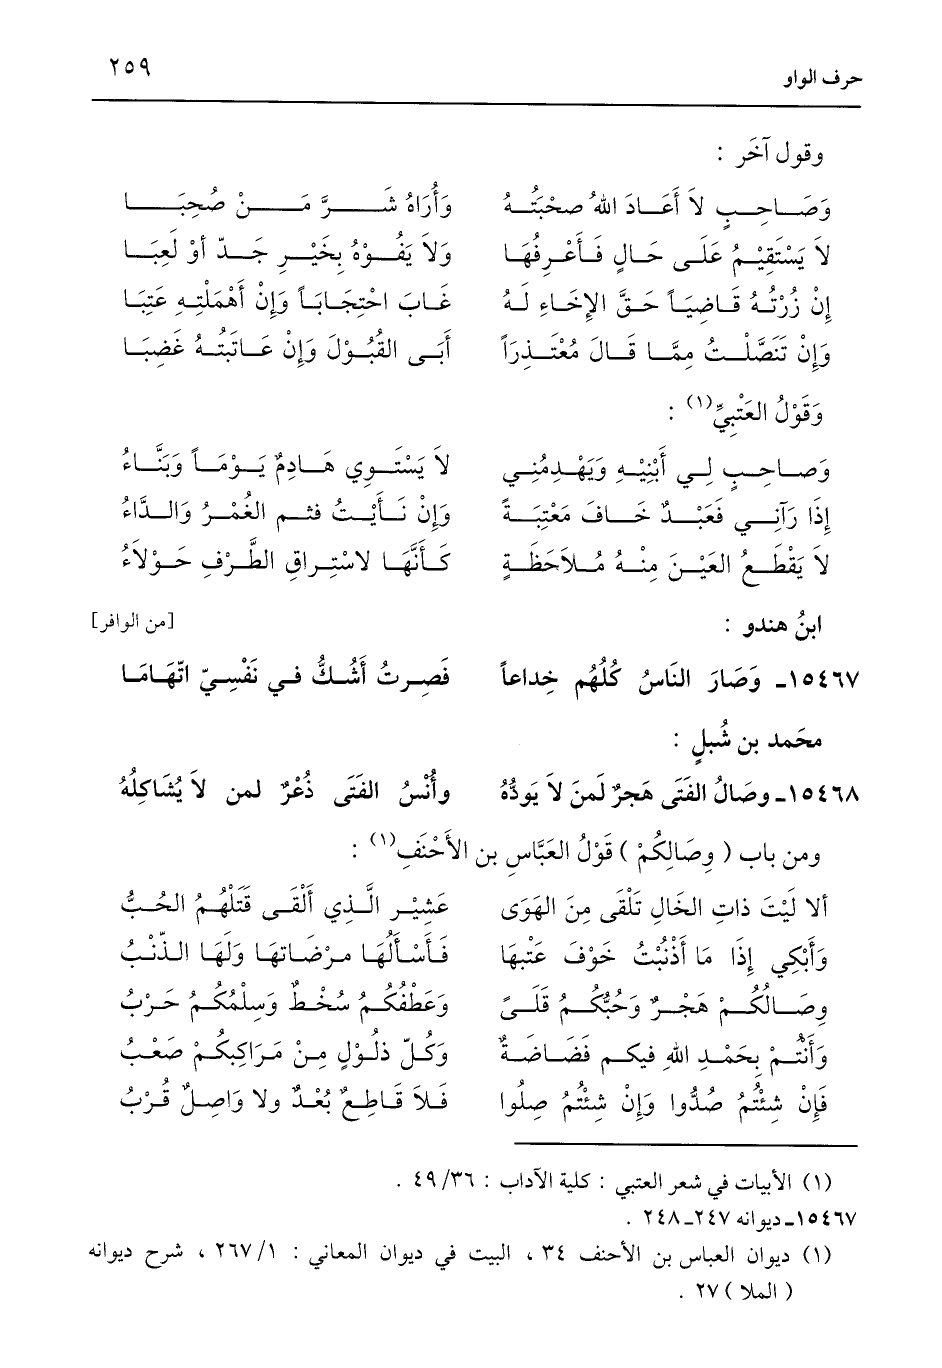 حرف الواو ٢٥٩
وقول آخَر :
وَصَاحِبٍ لاَ أَعَادَ اللهُ صحْبَتُهُ وَأُرَاهُ شَرَّ مَنْ صُحِبَا
لاَ يَسْتَقِيْمُ عَلَى حَالٍ فَأعْرِفُهَا وَلاَ يَفُوْهُ بِخَيْرٍ جَدّ أوْ لَعِبَا
إنْ زُرْتُهُ قَاضِيَاً حَقَّ الإخَاءِ لَهُ غَابَ احْتِجَابَاً وَإنْ أهْمَلْتِهِ عَتِبَا
وَإنْ تَنَصَّلْتُ مِمَّا قَالَ مُعْتَذِرَاً أبَى القُبُوْلَ وَإنْ عَاتَبْتُهُ غَضِبَا
وَقَوْلُ العَتْبِيِّ(١) :
وَصَاحِبٍ لِي أبْنِيْهِ وَيَهْدِمُنِي لاَ يَسْتَوِي هَادِمٌ يَوْمَاً وَبَنَّاءُ
إذَا رَآنِي فَعَبْدٌ خَافَ مَعْتِبَةً وَإنْ نَأيْتُ فثم الغُمْرُ وَالدَّاءُ
لاَ يَقْطَعُ العَيْنَ مِنْهُ مُلاَحَظَةٍ كَأنَّهَا لاسْتِراقِ الطَّرْفِ حَوْلاَءُ
ابنُ هندو : [من الوافر]
١٥٤٦٧ـ وَصَارَ النَاسُ كُلُهُم خِداعاً فَصِرتُ أشُكُّ في نَفْسِيّ اتّهَامَا
محَمد بن شُبلٍ :
١٥٤٦٨ـ وصَالُ الفَتَى هَجرٌ لَمنَ لاَ يَودُّهُ وأُنْسُ الفَتَى ذُعْرٌ لمن لاَ يُشَاكِلُهُ
ومن باب ( وِصَالِكُمْ ) قَوْلُ العَبَّاسِ بن الأَحْنَفِ(١) :
ألا لَيْتَ ذَاتِ الخَالِ تَلْقَى مِنَ الهَوَى عَشِيْرِ الَّذِي ألْقَى قَتَلْهُمُ الحُبُّ
وَأبْكِي إذَا مَا أذْنَبْتُ خَوْفَ عَتْبِهَا فَأسْألُهَا مرْضَاتهَا وَلَهَا الذّنْبُ
وِصَالُكُمْ هَجْرٌ وَحُبُّكُمُ قلَىً وَعَطْفُكُمُ سُخْطٌ وَسِلْمُكُمُ حَرْبُ
وَأَنْتُمْ بِحَمْدِ اللهِ فيكم فَضَاضَةٌ وَكُلّ ذلُوْلٍ مِنْ مَرَاكِبِكُمْ صَعْبُ
فَإنْ شِئْتُمُ صُدُّوا وَإنْ شِئْتُمُ صِلُوا فَلاَ قَاطِعٌ بُعْدٌ ولا وَاصِلٌ قُرْبُ
(١) الأبيات في شعر العتبي : كلية الآداب : ٤٩/٣٦ .
١٥٤٦٧ـ ديوانه ٢٤٧ـ٢٤٨ .
(١) ديوان العباس بن الأحنف ٣٤ ، البيت في ديوان المعاني : ٢٦٧/١ ، شرح ديوانه
( الملا ) ٢٧ .